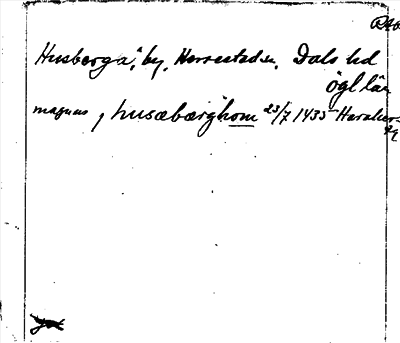 RAO
Husberga, by, Herrestad sn, Dals hd
ögl län
magnus, husæbærghom 23/7 1435 Haraker